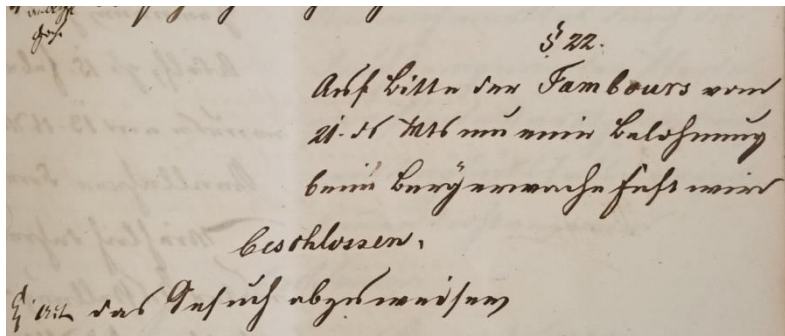 § 22.
Auf Bitte der Tambours vom
21. ds Mts um eine Belohnung
beim Bürgerwache Fest wird
beschlossen,
das Gesuch abzuweisen